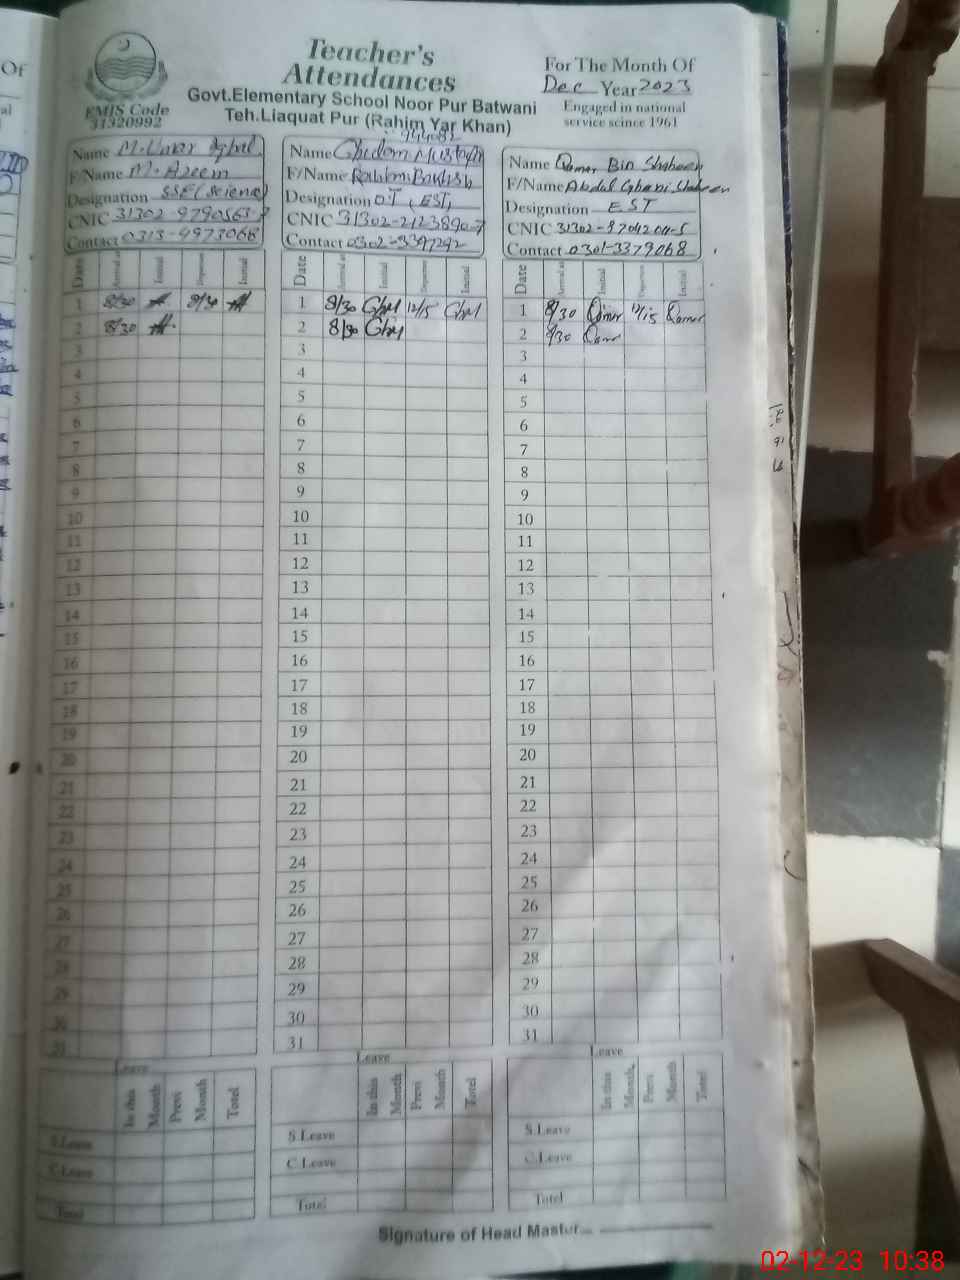 Teacher's
Attendances
Govt.Elementary School Noor Pur Batwani
Teh.Liaquat Pur (Rahim Yar Khan)
EMIS Code
31320992
For The Month Of
Dec Year 2023
Engaged in national
service scince 1961
Name M. Umar Iqbal
F/Name M. Azeem
Designation SSE (Science)
CNIC
Contact 0313-4973068
Date Arrival at Initial Departure Initial
1 8/30
2 8/30
3
4
5
6
7
8
9
10
11
12
13
14
15
16
17
18
19
20
21
22
23
24
25
26
27
28
29
30
31
Leave
In this Month Previ Month Totel
S.Leave
C.Leave
Totel
Name Ghulam Mustafa
F/Name Rahim Bakhsh
Designation OT, EST,
CNIC
Contact
Date Arrival at Initial Departure Initial
1 8/30 12/15
2 8/30
3
4
5
6
7
8
9
10
11
12
13
14
15
16
17
18
19
20
21
22
23
24
25
26
27
28
29
30
31
Leave
In this Month Previ Month Totel
S.Leave
C.Leave
Totel
Name Qamar Bin Shaheen
F/Name Abdul Ghani Shaheen
Designation EST
CNIC
Contact 0301-3379068
Date Arrival at Initial Departure Initial
1 8/30 Qamar 12/15 Qamar
2 8/30 Qamar
3
4
5
6
7
8
9
10
11
12
13
14
15
16
17
18
19
20
21
22
23
24
25
26
27
28
29
30
31
Leave
In this Month Previ Month Totel
S.Leave
C.Leave
Totel
Signature of Head Master
02-12-23 10:38